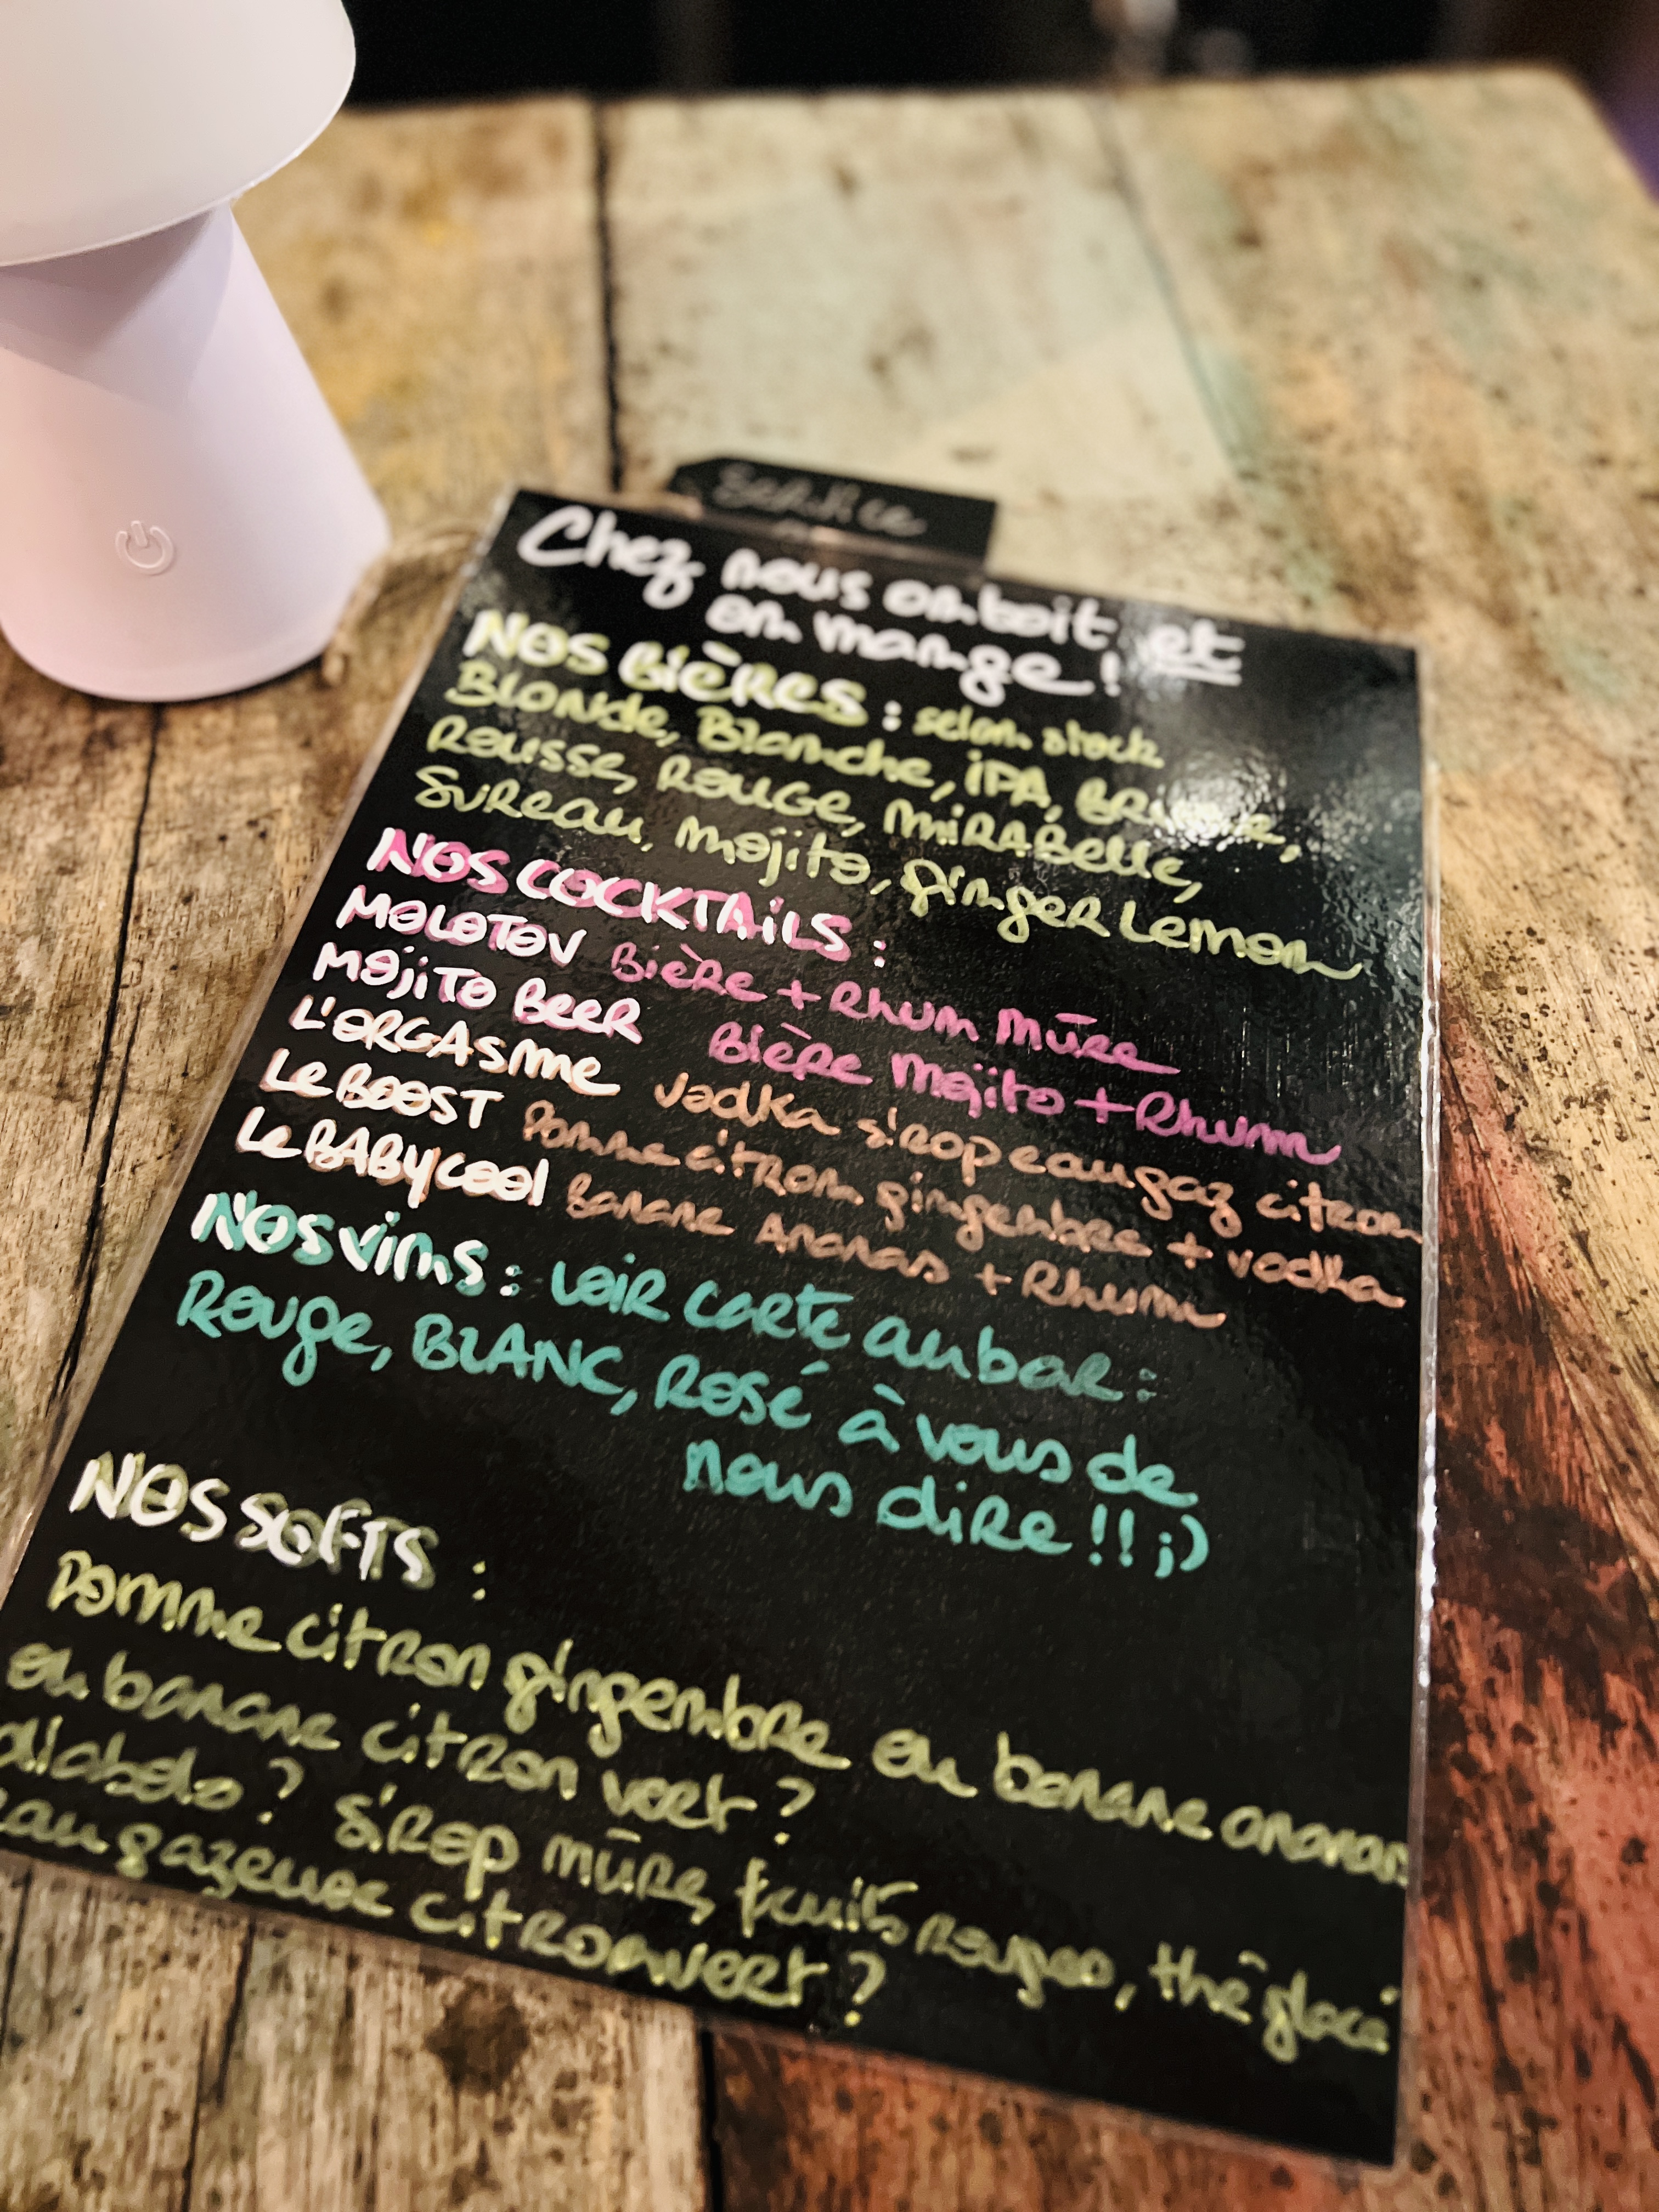 Chez nous on boit et
on mange !
NOS BIÈRES : selon stock
BLONDE, Blanche, IPA, BRUNE,
ROUSSE, ROUGE, MIRABELLE,
SUREAU, Mojito, GINGER LEMON
NOS COCKTAILS :
MOLOTOV Bière + Rhum mûre
MOJITO BEER Bière Mojito + Rhum
L'ORGASME vodka sirop eau gaz citron
Le BOOST Pomme citron gingembre + vodka
Le BABY cool Banane Ananas + Rhum
NOS vins : voir carte au bar :
Rouge, BLANC, Rosé à vous de
nous dire !! ;)
NOS SOFTS :
Pomme citron gingembre ou banane ananas
ou banane citron vert ?
diabolo ? Sirop mûre, fruits rouges, thé glacé
eau gazeuse citron vert ?